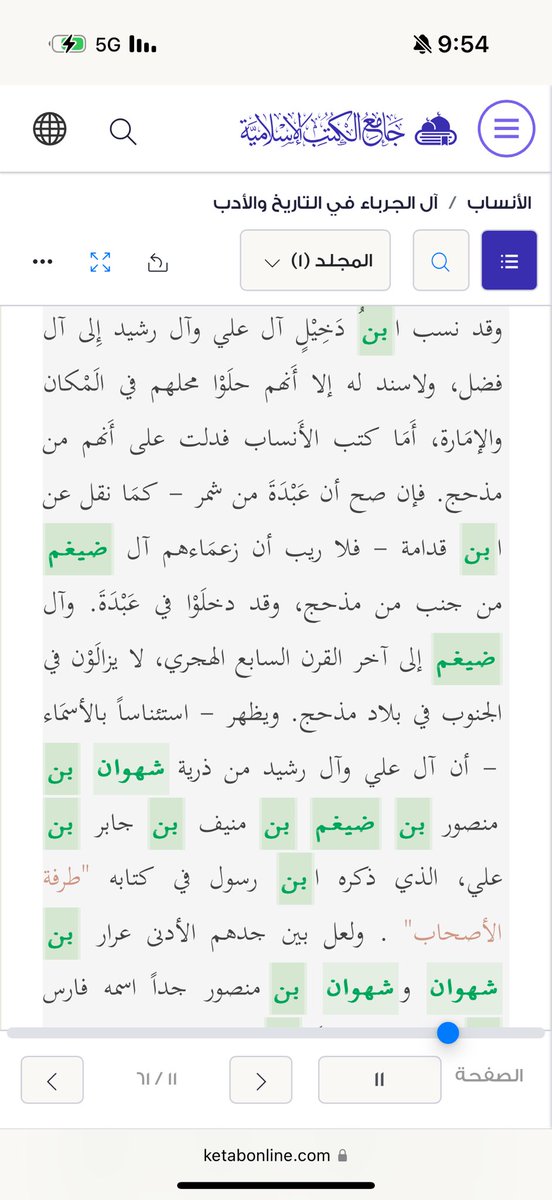 5G 9:54
جامع الكتب الإسلامية
الأنساب / آل الجرباء في التاريخ والأدب
المجلد (١)
وقد نسب ابنُ دَخِيْلٍ آل علي وآل رشيد إِلى آل
فضل، ولاسند له إلا أَنهم حلَوْا محلهم في الَمْكان
والإمَارة، أَمَا كتب الأَنساب فدلت على أَنهم من
مذحج. فإن صح أن عَبْدَةَ من شمر – كمَا نقل عن
ابن قدامة – فلا ريب أن زعمَاءهم آل ضيغم
من جنب من مذحج، وقد دخلَوْا في عَبْدَةَ. وآل
ضيغم إلى آخر القرن السابع الهجري، لا يزالَوْن في
الجنوب في بلاد مذحج. ويظهر – استئناساً بالأسمَاء
– أن آل علي وآل رشيد من ذرية شهوان بن
منصور بن ضيغم بن منيف بن جابر بن
علي، الذي ذكره ابن رسول في كتابه "طرفة
الأصحاب" . ولعل بين جدهم الأدنى عرار بن
شهوان وشهوان بن منصور جداً اسمه فارس
الصفحة ١١ ١١ / ٦١
ketabonline.com